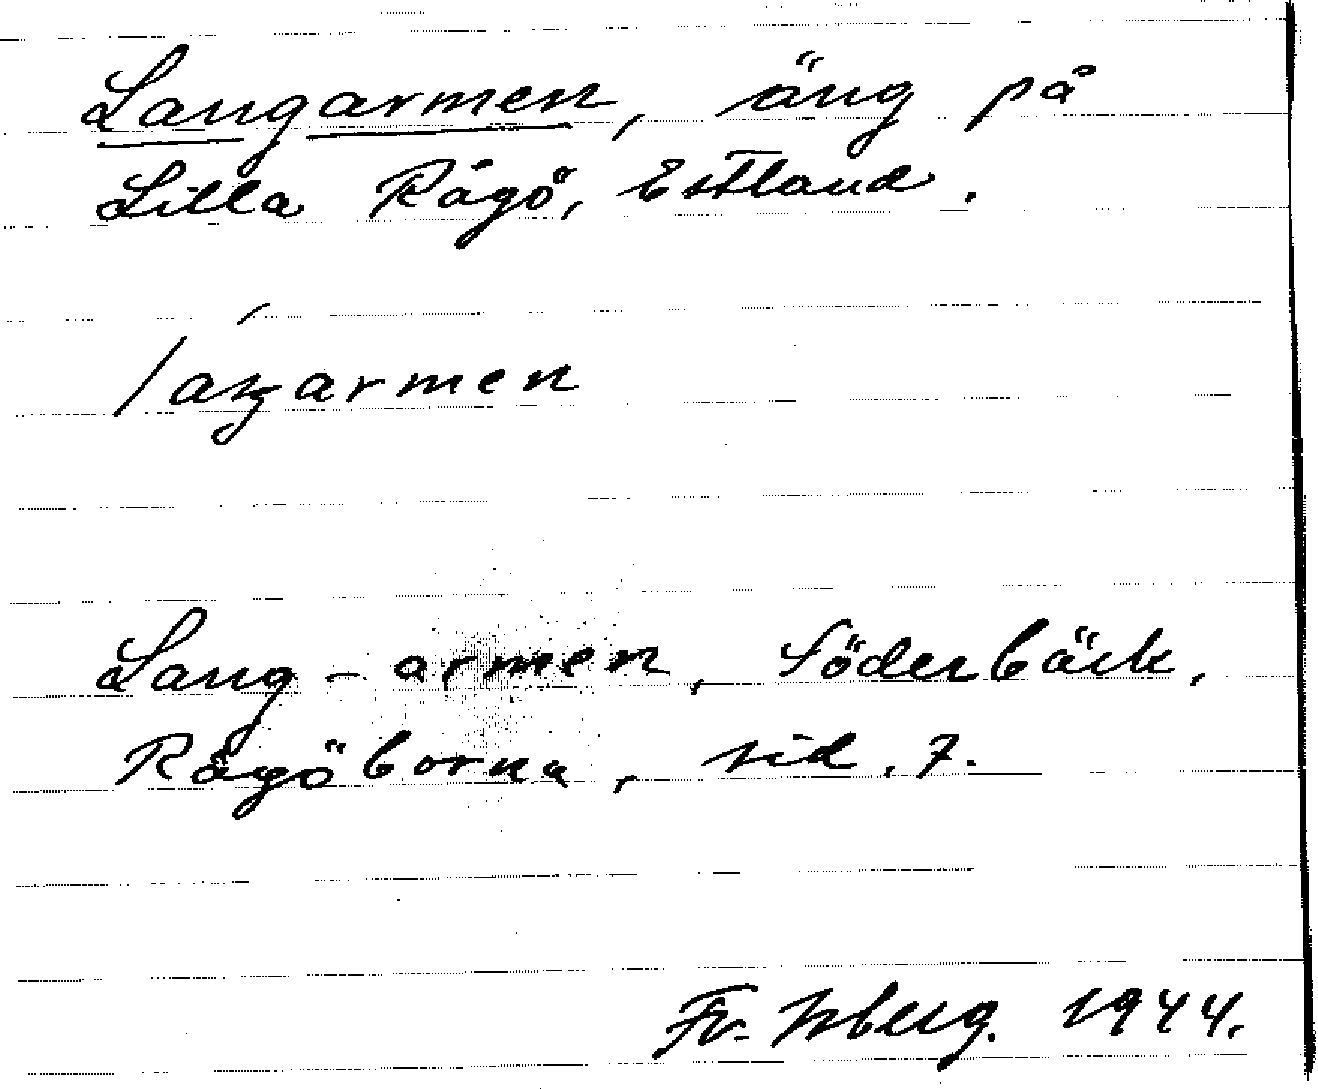 Langarmen, äng på
Lilla Rågö, Estland.
láŋgarmen
Lang-armen, Söderbäck,
Rågöborna, sid. 7.
1944.